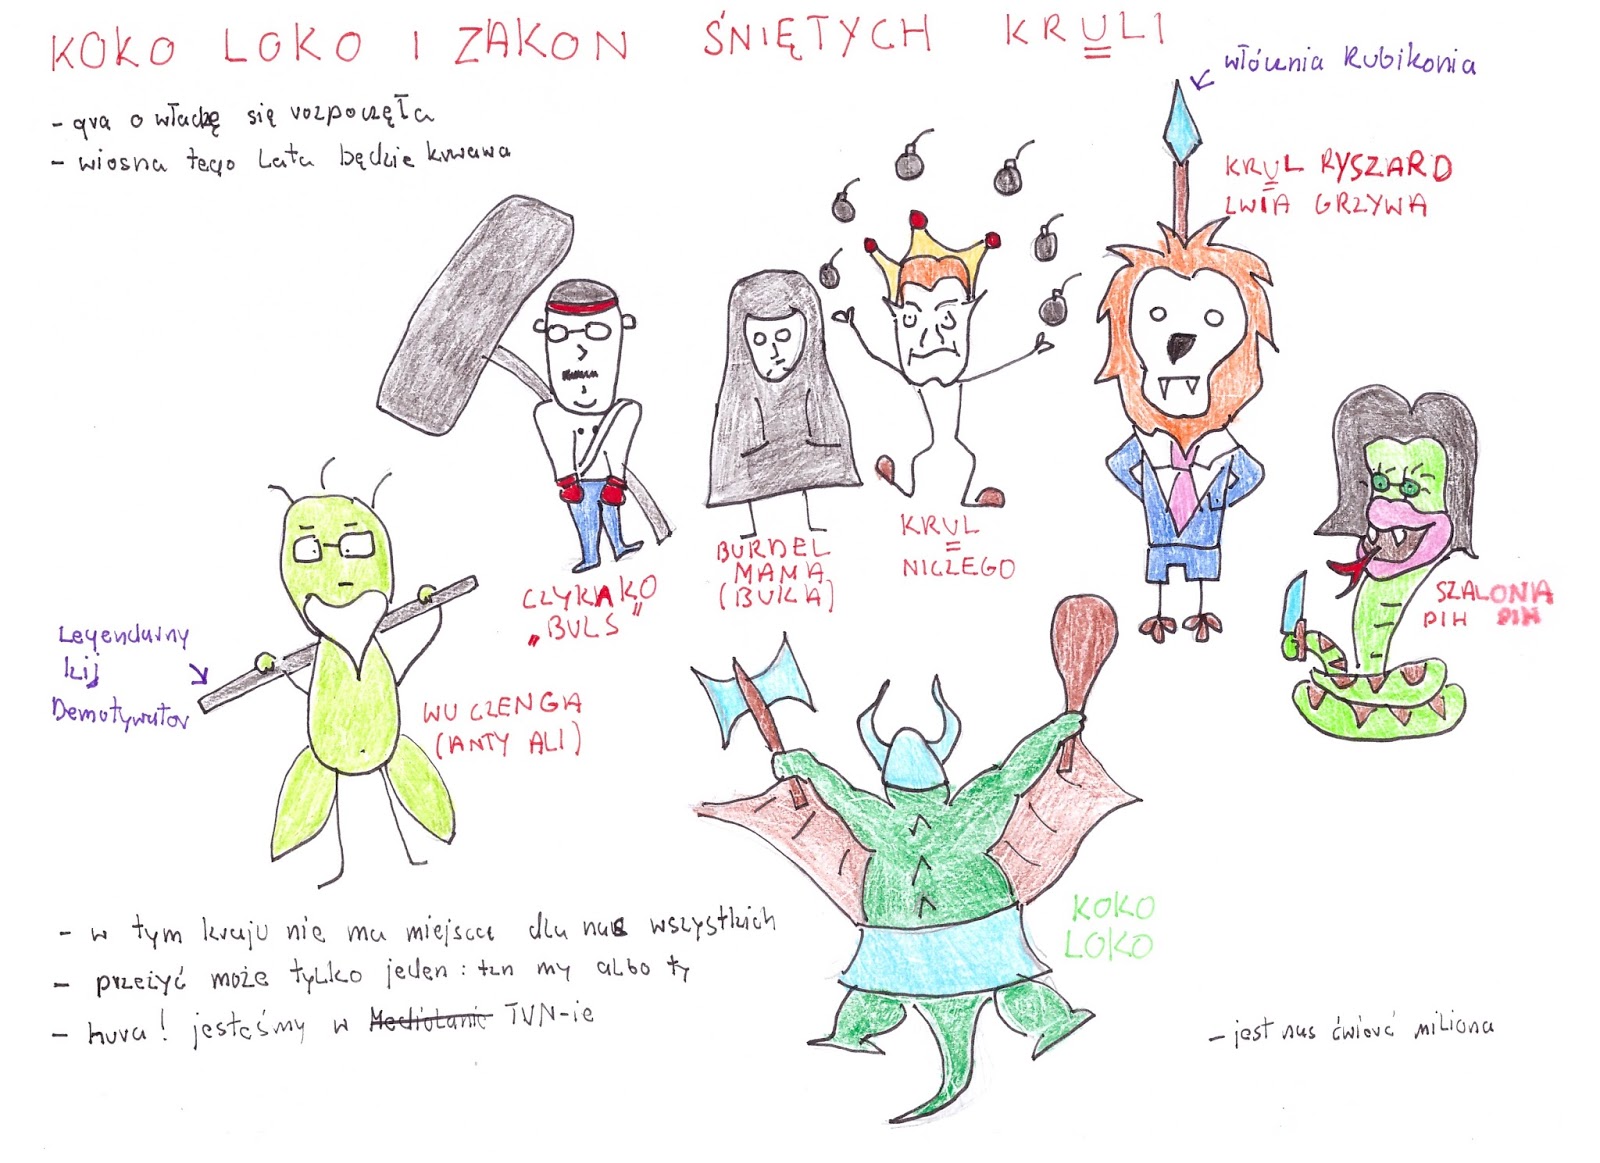 KOKO LOKO I ZAKON ŚNIĘTYCH KRULI
- gra o władzę się rozpoczęła
- wiosna tego lata będzie krwawa
włócznia Rubikonia
KRUL RYSZARD
LWIA GRZYWA
KRUL
NICZEGO
BURDEL
MAMA
(BUKA)
CZYKAKO
„BULS"
SZALONA
PIH PIH
Legendarny
kij
Demotywator
WU CZENGA
(ANTY ALI)
KOKO
LOKO
- w tym kraju nie ma miejsca dla nas wszystkich
- przeżyć może tylko jeden: ten my albo ty
- hura! jesteśmy w Mediolanie TVN-ie
- jest nas ćwierć miliona